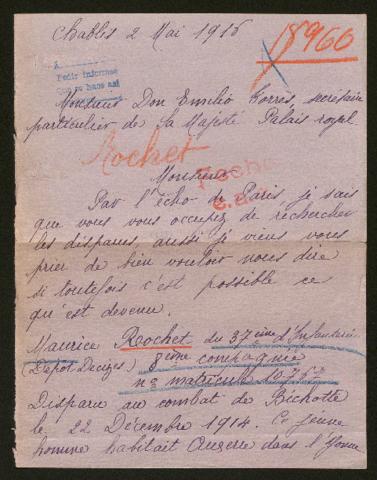 Chablis 2 Mai 1916
18960
A
Pedir informes
Que se hace asi
Monsieur Don Emilio Torrès, secrétaire
particulier de Sa Majesté Palais royal
Rochet
Monsieur
Par l'écho de Paris je sais
que vous vous occupez de rechercher
les disparus, aussi je viens vous
prier de bien vouloir nous dire
si toutefois c'est possible ce
qu'est devenu.
Maurice Rochet du 37ème d'Infanterie
(Dépot Decizes) 8ième compagnie
no matricule
Disparu au combat de Bichotte
le 22 Décembre 1914. Ce jeune
homme habitait Auxerre dans l'Yonne